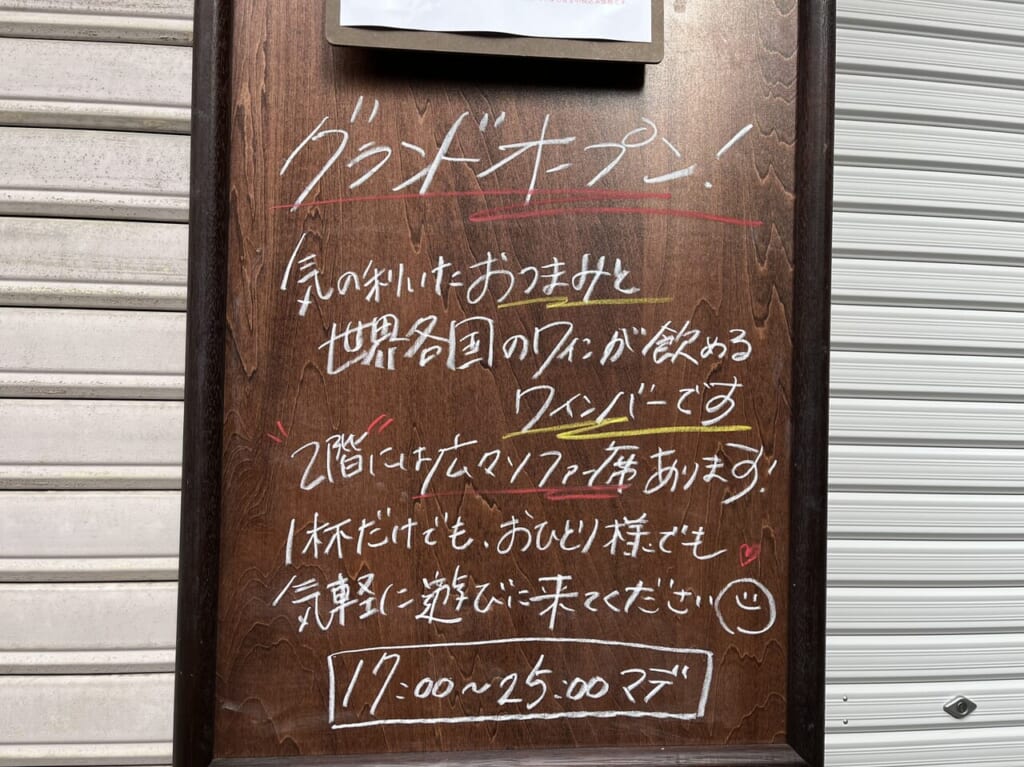 グランドオープン!
気の利いたおつまみと
世界各国のワインが飲める
ワインバーです
2階には広々ソファー席あります!
1杯だけでも、おひとり様でも
気軽に遊びに来てください
17:00〜25:00マデ